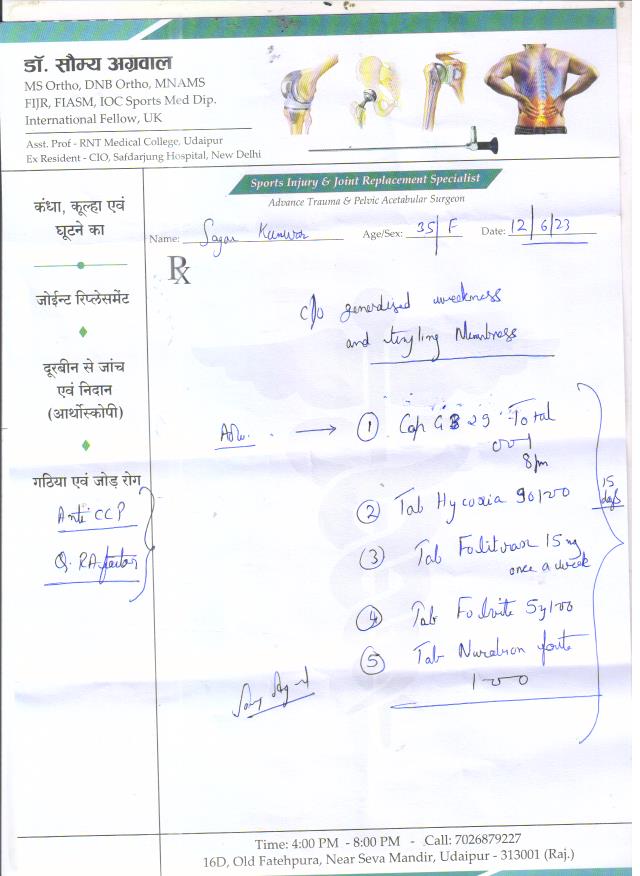 डॉ. सौम्य अग्रवाल
MS Ortho, DNB Ortho, MNAMS
FIJR, FIASM, IOC Sports Med Dip.
International Fellow, UK
Asst. Prof - RNT Medical College, Udaipur
Ex Resident - CIO, Safdarjung Hospital, New Delhi
Sports Injury & Joint Replacement Specialist
Advance Trauma & Pelvic Acetabular Surgeon
Name: Sagar Kunwar Age/Sex: 35/F Date: 12/6/23
कंधा, कूल्हा एवं
घूटने का
जोईन्ट रिप्लेसमेंट
दूरबीन से जांच
एवं निदान
(आर्थोस्कोपी)
गठिया एवं जोड़ रोग
Anti CCP
Q. RA factor
Rx
c/o generalized weakness
and tingling Numbness
Adv. → ① Cap G B 29 Total
001
8pm
② Tab Hycoxia 90 100
③ Tab Folitrax 15 mg
once a week
④ Tab Folvite 5 100
⑤ Tab forte
100
15
days
Time: 4:00 PM - 8:00 PM - Call: 7026879227
16D, Old Fatehpura, Near Seva Mandir, Udaipur - 313001 (Raj.)